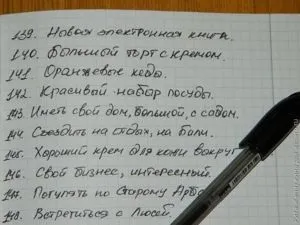 139. Новая электронная книга.
140. Большой торт с кремом.
141. Оранжевые кеды.
142. Красивый набор посуды.
143. Иметь свой дом, большой, с садом.
144. Съездить на отдых, на Бали.
145. Хороший крем для кожи вокруг
146. Свой бизнес, интересный.
147. Погулять по Старому
148. Встретиться с Люсей.